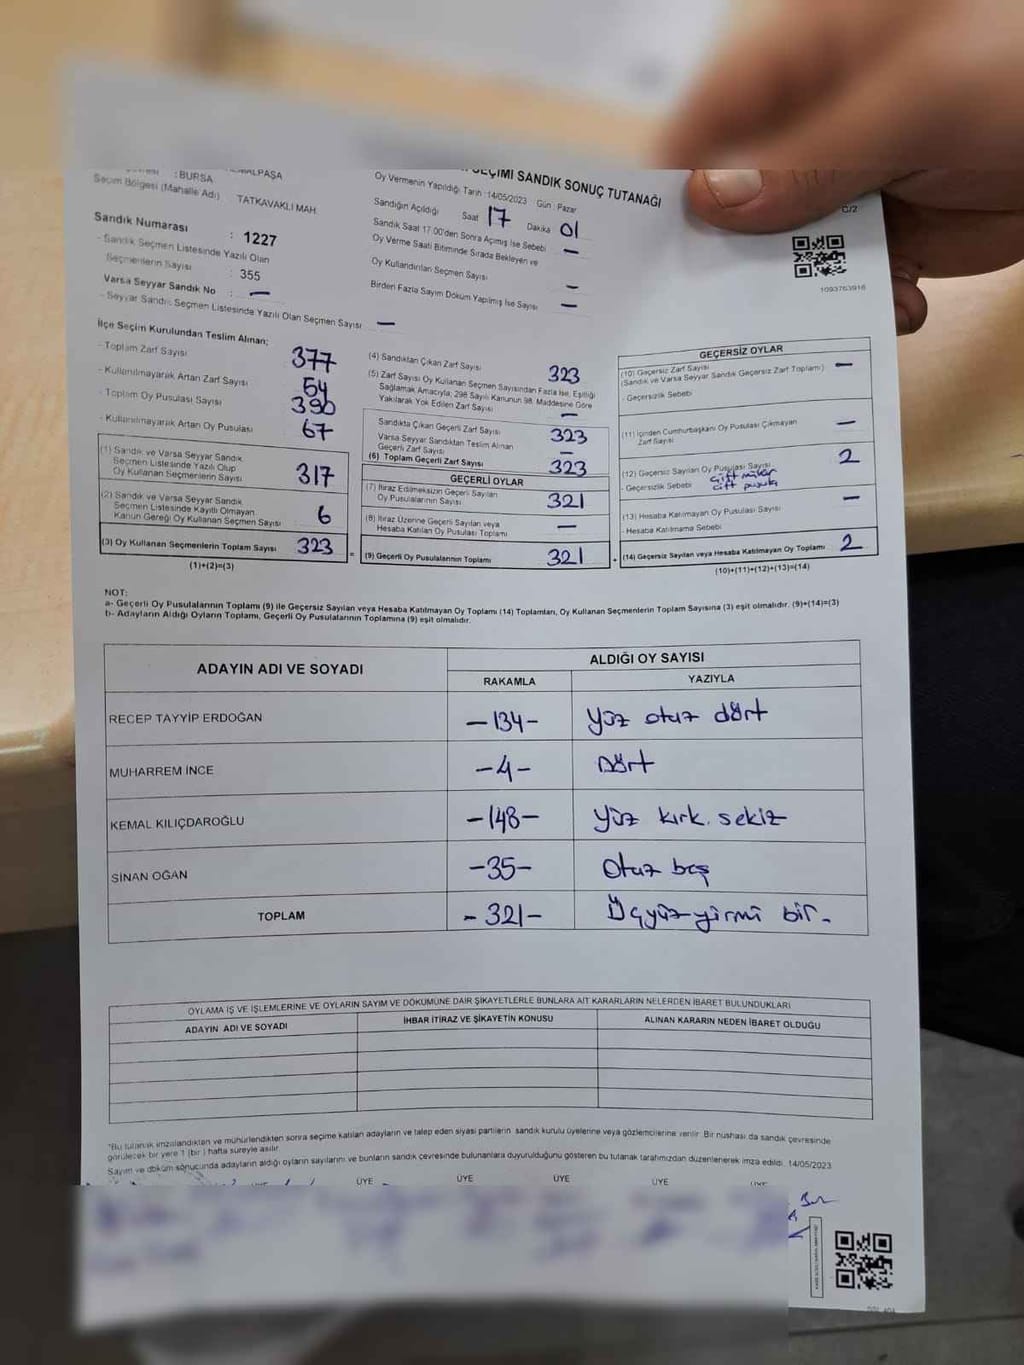 SEÇİMİ SANDIK SONUÇ TUTANAĞI
: BURSA
Seçim Bölgesi (Mahalle Adı) TATKAVAKLI MAH.
Sandık Numarası : 1227
- Sandık Seçmen Listesinde Yazılı Olan
Seçmenlerin Sayısı : 355
Varsa Seyyar Sandık No : —
- Seyyar Sandık Seçmen Listesinde Yazılı Olan Seçmen Sayısı —
Oy Vermenin Yapıldığı Tarih : 14/05/2023 Gün : Pazar
Sandığın Açıldığı Saat 17 Dakika 01
Sandık Saat 17.00'den Sonra Açılmış İse Sebebi —
Oy Verme Saati Bitiminde Sırada Bekleyen ve
Oy Kullandırılan Seçmen Sayısı —
Birden Fazla Sayım Döküm Yapılmış İse Sayısı —
C/2
1093763916
İlçe Seçim Kurulundan Teslim Alınan;
- Toplam Zarf Sayısı 377
- Kullanılmayarak Artan Zarf Sayısı 54
- Toplam Oy Pusulası Sayısı 390
- Kullanılmayarak Artan Oy Pusulası 67
(1) Sandık ve Varsa Seyyar Sandık
Seçmen Listesinde Yazılı Olup
Oy Kullanan Seçmenlerin Sayısı 317
(2) Sandık ve Varsa Seyyar Sandık
Seçmen Listesinde Kayıtlı Olmayan
Kanun Gereği Oy Kullanan Seçmen Sayısı 6
(3) Oy Kullanan Seçmenlerin Toplam Sayısı 323
(1)+(2)=(3)
(4) Sandıktan Çıkan Zarf Sayısı 323
(5) Zarf Sayısı Oy Kullanan Seçmen Sayısından Fazla İse, Eşitliği
Sağlamak Amacıyla, 298 Sayılı Kanunun 98. Maddesine Göre
Yakılarak Yok Edilen Zarf Sayısı —
Sandıkta Çıkan Geçerli Zarf Sayısı 323
Varsa Seyyar Sandıktan Teslim Alınan
Geçerli Zarf Sayısı —
(6) Toplam Geçerli Zarf Sayısı 323
GEÇERLİ OYLAR
(7) İtiraz Edilmeksizin Geçerli Sayılan
Oy Pusulalarının Sayısı 321
(8) İtiraz Üzerine Geçerli Sayılan veya
Hesaba Katılan Oy Pusulası Toplamı —
= (9) Geçerli Oy Pusulalarının Toplamı 321
GEÇERSİZ OYLAR
(10) Geçersiz Zarf Sayısı —
(Sandık ve Varsa Seyyar Sandık Geçersiz Zarf Toplamı)
- Geçersizlik Sebebi
(11) İçinden Cumhurbaşkanı Oy Pusulası Çıkmayan
Zarf Sayısı —
(12) Geçersiz Sayılan Oy Pusulası Sayısı 2
- Geçersizlik Sebebi çift mühür
çift pusula
(13) Hesaba Katılmayan Oy Pusulası Sayısı —
- Hesaba Katılmama Sebebi
+ (14) Geçersiz Sayılan veya Hesaba Katılmayan Oy Toplamı 2
(10)+(11)+(12)+(13)=(14)
NOT:
a- Geçerli Oy Pusulalarının Toplamı (9) ile Geçersiz Sayılan veya Hesaba Katılmayan Oy Toplamı (14) Toplamları, Oy Kullanan Seçmenlerin Toplam Sayısına (3) eşit olmalıdır. (9)+(14)=(3)
b- Adayların Aldığı Oyların Toplamı, Geçerli Oy Pusulalarının Toplamına (9) eşit olmalıdır.
ADAYIN ADI VE SOYADI ALDIĞI OY SAYISI
RAKAMLA YAZIYLA
RECEP TAYYİP ERDOĞAN -134- Yüz otuz dört
MUHARREM İNCE -4- Dört
KEMAL KILIÇDAROĞLU -148- Yüz kırk sekiz
SİNAN OĞAN -35- Otuz beş
TOPLAM -321- Üçyüz yirmi bir-
OYLAMA İŞ VE İŞLEMLERİNE VE OYLARIN SAYIM VE DÖKÜMÜNE DAİR ŞİKAYETLERLE BUNLARA AİT KARARLARIN NELERDEN İBARET BULUNDUKLARI
ADAYIN ADI VE SOYADI İHBAR İTİRAZ VE ŞİKAYETİN KONUSU ALINAN KARARIN NEDEN İBARET OLDUĞU
*Bu tutanak imzalandıktan ve mühürlendikten sonra seçime katılan adayların ve talep eden siyasi partilerin sandık kurulu üyelerine veya gözlemcilerine verilir. Bir nushası da sandık çevresinde
görülecek bir yere 1 (bir) hafta süreyle asılır.
Sayım ve döküm sonucunda adayların aldığı oyların sayılarını ve bunların sandık çevresinde bulunanlara duyurulduğunu gösteren bu tutanak tarafımızdan düzenlenerek imza edildi. 14/05/2023
ÜYE ÜYE ÜYE ÜYE